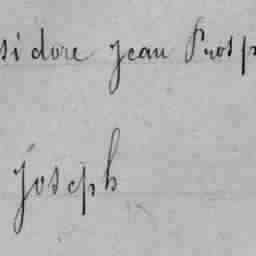 sidore Jean Prosp
Joseph